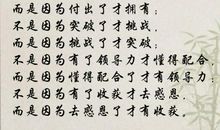 而是因为付出了才拥有；
不是因为突破了才挑战，
而是因为挑战了才突破；
不是因为有了领导力才懂得配合，
而是因为懂得配合了才有领导力，
不是因为有了收获才去感恩，
而是因为去感恩了才有收获。